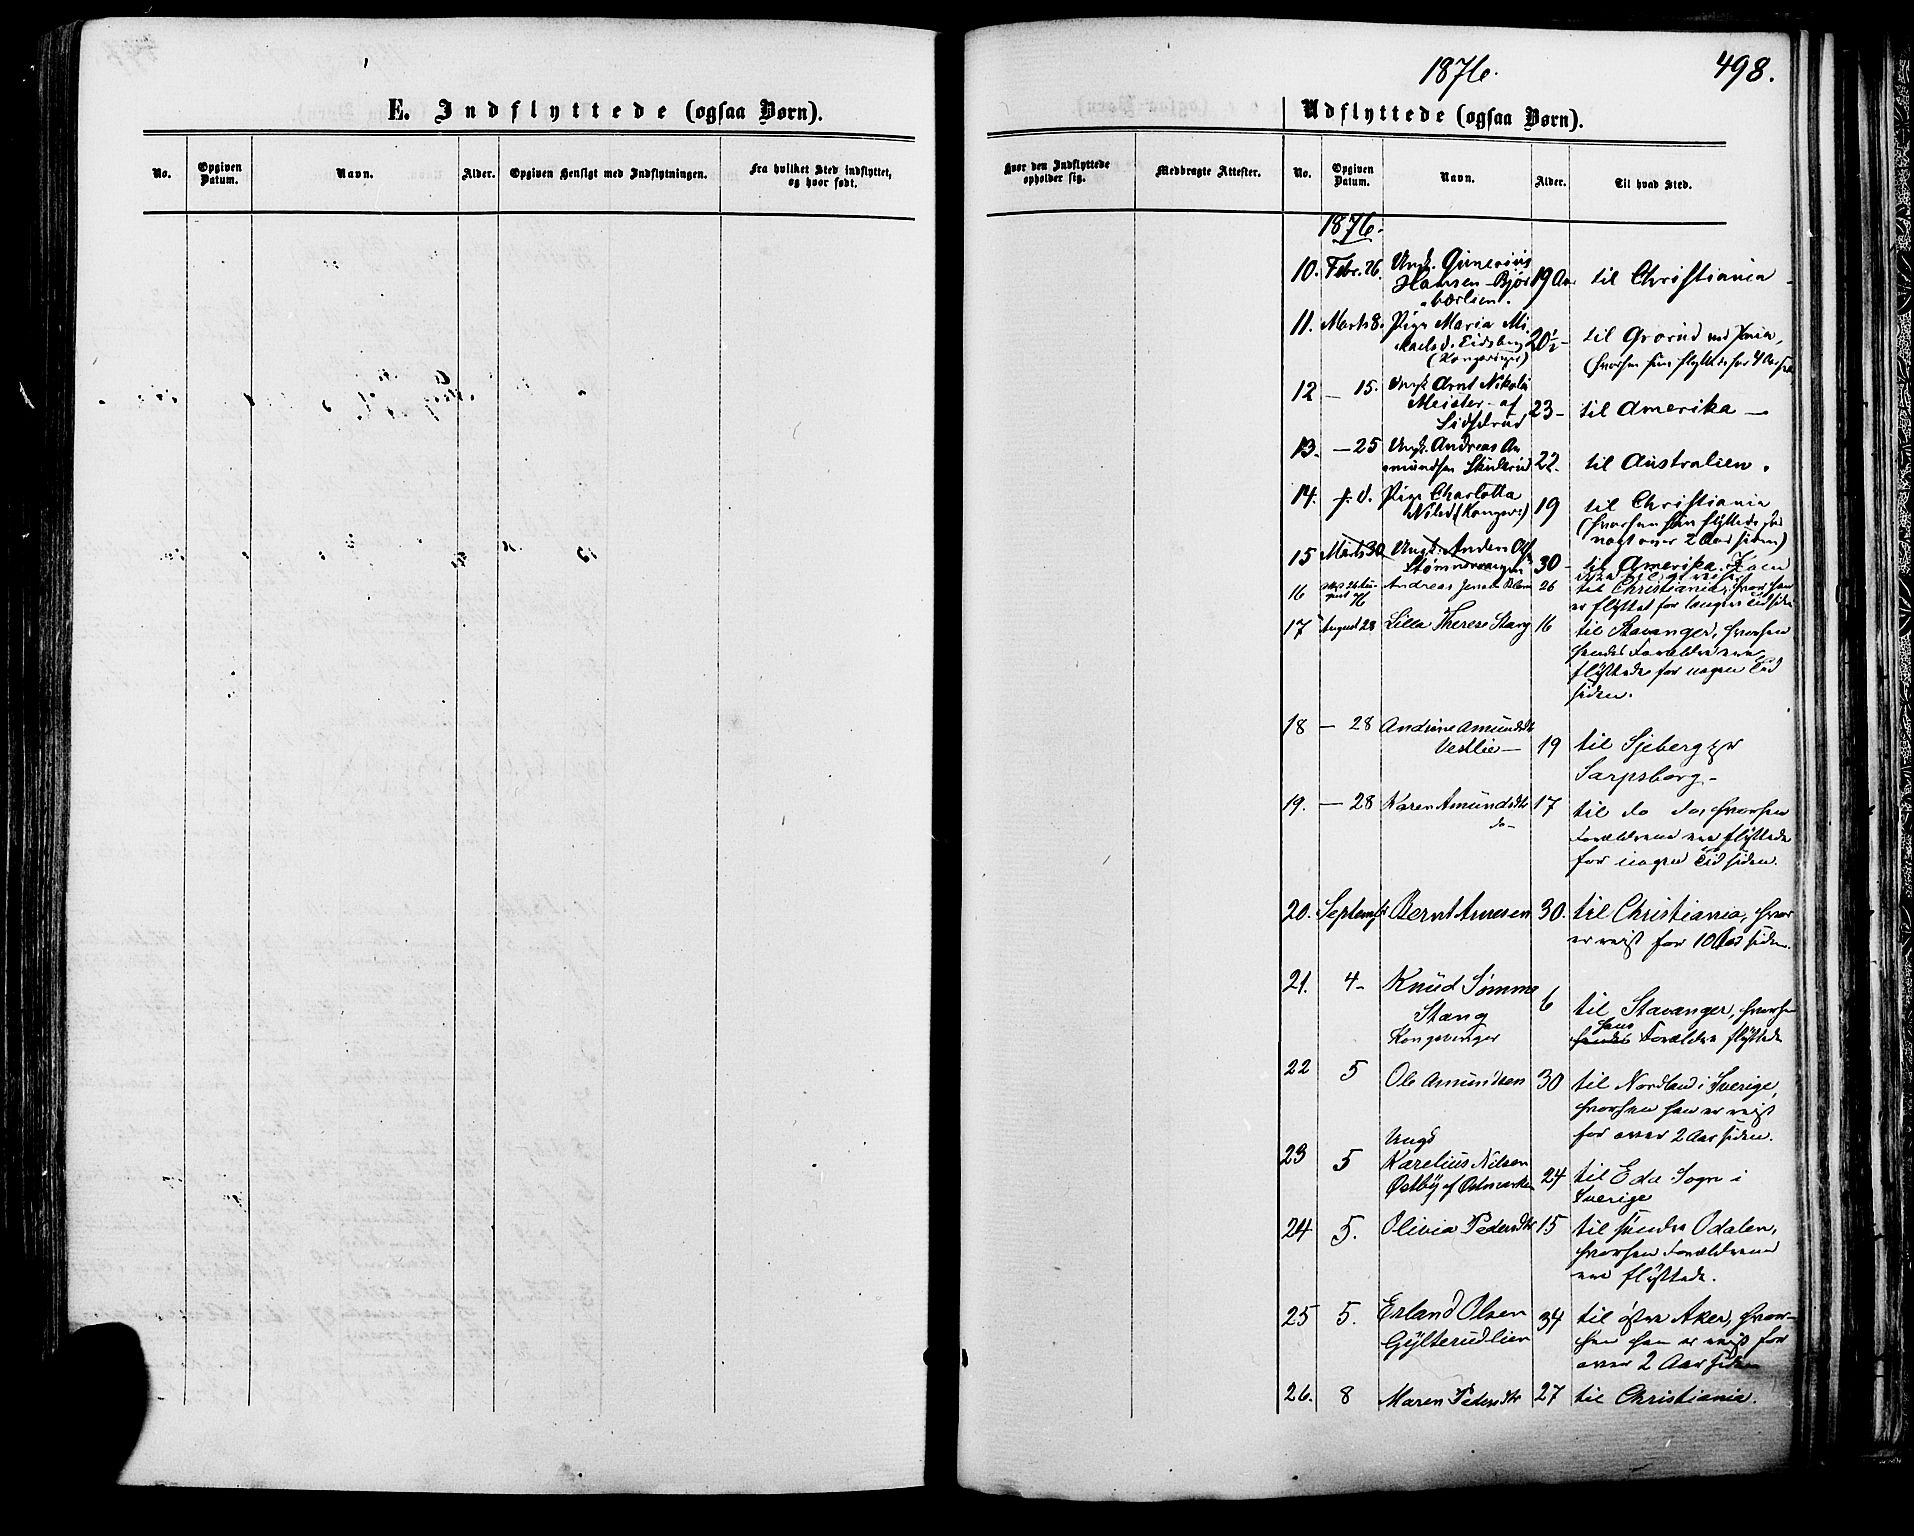 1876.
498.
E. Indflyttede (ogsaa Børn).
Udflyttede (ogsaa Børn).
No.
Opgiven Datum.
Navn.
Alder.
Opgiven Hensigt med Indflytningen.
Fra hvilket Sted indflyttet, og hvor født.
Hvor den Indflyttede opholder sig.
Medbragte Attester.
No.
Opgiven Datum.
Navn.
Alder.
Til hvad Sted.
1876.
10. Febr. 26. Ungk. 19 Aar til Christiania
Hansen Bjør
bærlien.
11. Marts 8. Pige Maria Mi 20½ til Grorud
kaelsd. Eidsberg
(Kongsvinger) (hvorhen hun flyttede for 4 Aar siden
12 — 15. Ungk Arnt Nikolai
Meister af 23 - til Amerika —
13. — 25 Ungk. Andreas A
mundsen 22. til Australien.
14. s. d. Pige Charlotta 19 til Christiania
Nilsd (Kongsv:) (hvorhen hun flyttede for
noget over 2 Aar siden)
15 Marts 30 Ungk. Anders Ols 30 - til Amerika.
16 Andreas Jensen 26 til Christiania, hvor han
er flyttet for længere Tid siden
17 August 28 Lilla Therese Stang 16 til Stavanger, hvorhen
hendes Forældre ere
flyttede for nogen Tid
siden.
18 — 28 Andrine Amundsdtr
Vestlie — 19 til Sjeberg pr
Sarpsborg -
19. — 28 Karen Amundsdtr 17 til do do, hvorhen
do — Forældrene ere flyttede
for nogen Tid siden.
20. Septembr Bernt Arnesen 30. til Christiania, hvor
er reist for 10 Aar siden.
21. 4 - Knud Sømme 6 til Stavanger, hvorhen
Stang hans
Kongsvinger hendes Forældre flyttede
22 5 Ole Amundsen 30 til Nordland i Sverige,
hvorhen han er reist
for over 2 Aar siden.
23 5 Ungk
Karelius Nilsen 24 til Eda Sogn i
Østby af Ostmarken Sverige
24 5. Olivia Pedersdtr 15 til søndre Odalen,
hvorhen Forældrene
ere flyttede.
25 5. Erland Olsen 34 til østre Aker, hvor-
Gylterudlien hen han er reist for
over 2 Aar siden
26. 8 Maren Pedersdtr 27 til Christiania.